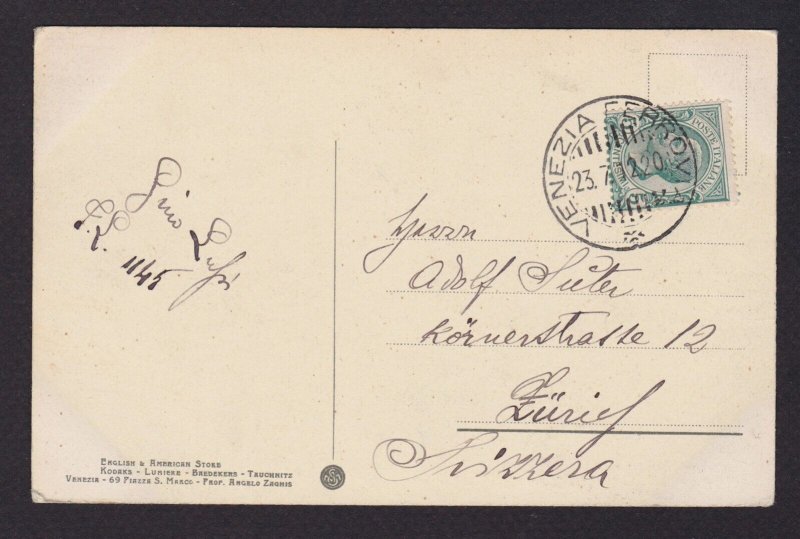 VENEZIA FERROVIA
23.7. 220
POSTE ITALIANE
Gino
1145
Herrn
Adolf Suter
Körnerstrasse 12
Zürich
Svizzera
ENGLISH & AMERICAN STORE
KODAKS - LUMIERE - BAEDEKERS - TAUCHNITZ
VENEZIA - 69 PIAZZA S. MARCO - PROF. ANGELO ZAGHIS